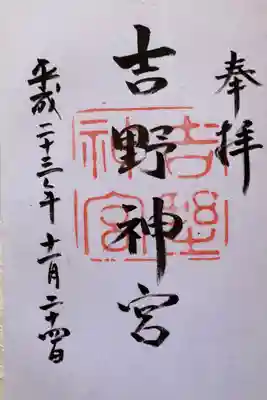 奉拝
吉野神宮
吉野神宮
平成二十三年十一月二十四日